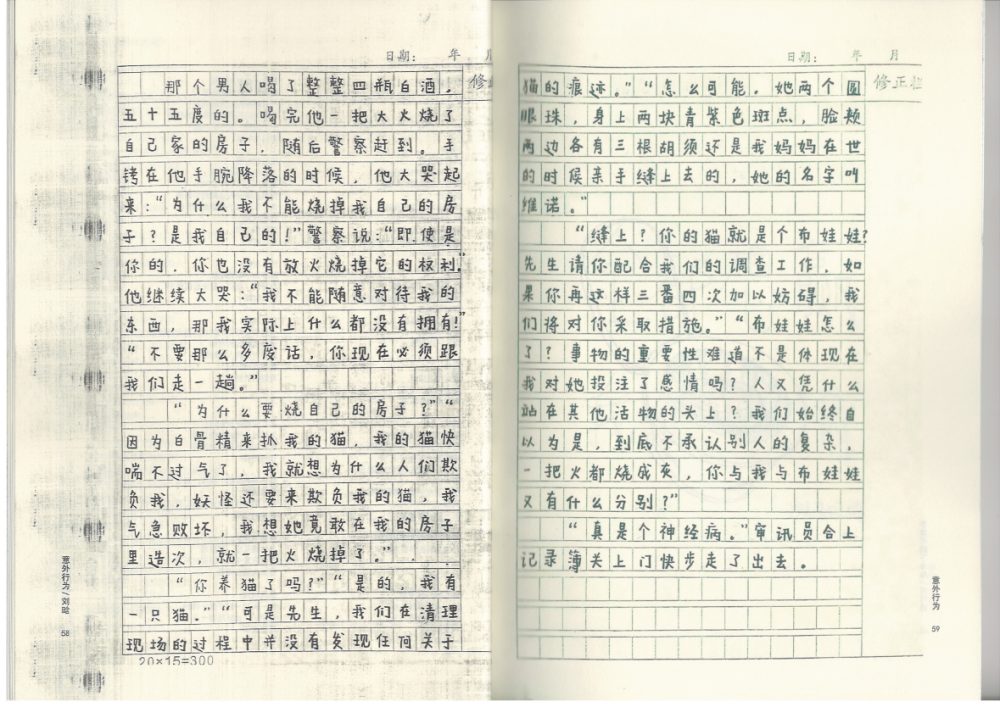 日期： 年 月
修正
那个男人喝了整整四瓶白酒，
五十五度的。喝完他一把大火烧了
自己家的房子，随后警察赶到。手
铐在他手腕降落的时候，他大哭起
来：“为什么我不能烧掉我自己的房
子？是我自己的！”警察说：“即使是
你的，你也没有放火烧掉它的权利。”
他继续大哭：“我不能随意对待我的
东西，那我实际上什么都没有拥有！”
“不要那么多废话，你现在必须跟
我们走一趟。”
“为什么要烧自己的房子？”“
因为白骨精来抓我的猫，我的猫快
喘不过气了，我就想为什么人们欺
负我，妖怪还要来欺负我的猫，我
气急败坏，我想她竟敢在我的房子
里造次，就一把火烧掉了。”
“你养猫了吗？”“是的，我有
一只猫。”“可是先生，我们在清理
现场的过程中并没有发现任何关于
20×15=300
意外行为/刘晗
58
日期： 年 月
修正
猫的痕迹。”“怎么可能，她两个圆
眼珠，身上两块青紫色斑点，脸颊
两边各有三根胡须还是我妈妈在世
的时候亲手缝上去的，她的名字叫
维诺。”
“缝上？你的猫就是个布娃娃？
先生请你配合我们的调查工作，如
果你再这样三番四次加以妨碍，我
们将对你采取措施。”“布娃娃怎么
了？事物的重要性难道不是体现在
我对她投注了感情吗？人又凭什么
站在其他活物的头上？我们始终自
以为是，到底不承认别人的复杂，
一把火都烧成灰，你与我与布娃娃
又有什么分别？”
“真是个神经病。”审讯员合上
记录簿关上门快步走了出去。
意外行为
59